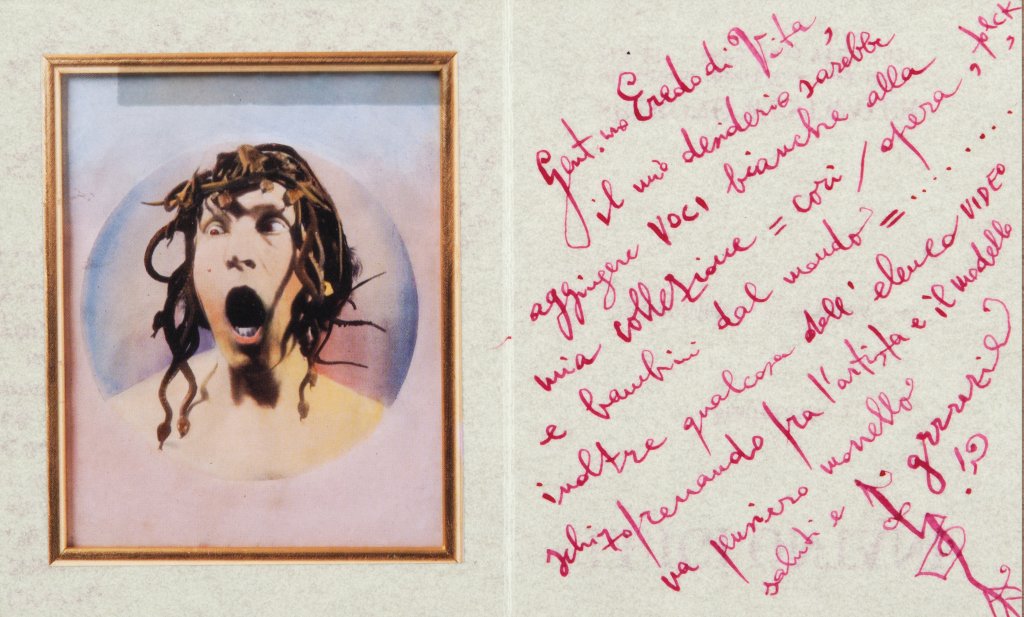 Gent.mo Eredo di Vita,
il mio desiderio sarebbe
aggiugere VOCI bianche alla
mia collezione = cori / opera, folck,
e bambini dal mondo = .........
inoltre qualcosa dell'elenco VIDEO
schizofrenando fra l'artista e il modello
va pensiero monello
saluti e grrrazie
!?